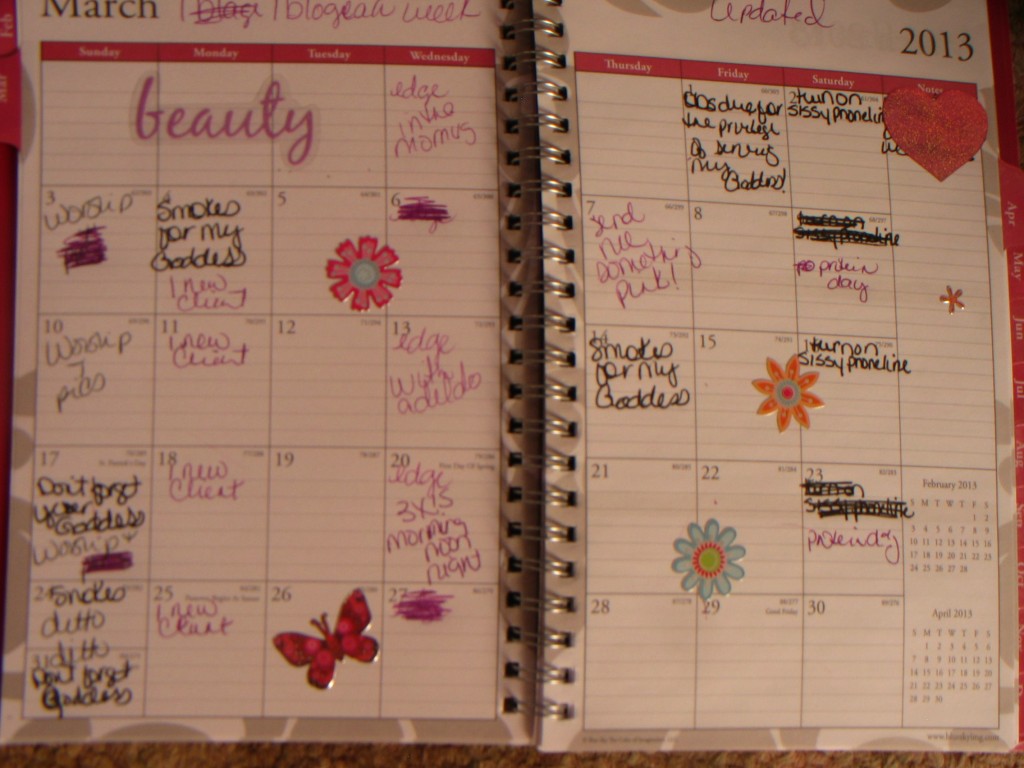 March
1 blog each week
Updated
2013
Sunday Monday Tuesday Wednesday
Thursday Friday Saturday Notes
beauty
edge
in the
morning
dos due for
the privilege
of serving
my
Goddess!
2 turn on
sissy phoneline
3
Worship
4
Smokes
for my
Goddess
1 new
client
5
6
7
send
me
something
pink!
8
turn on
sissyphoneline
protein
day
10
Worship
+
pics
11
1 new
client
12
13
edge
with
14
Smokes
for my
Goddess
15
turn on
sissyphoneline
17
St. Patrick's Day
Don't forget
your Goddess
Worship +
18
1 new
client
19
20
First Day Of Spring
edge
3X'S
morning
noon
night
21
22
23
turn on
sissyphoneline
protein day
24
Smokes
ditto
ditto
Don't forget
Goddess
25
Passover Begins At Sunset
1 new
client
26
27
28
29
Good Friday
30
February 2013
S M T W T F S
1 2
3 4 5 6 7 8 9
10 11 12 13 14 15 16
17 18 19 20 21 22 23
24 25 26 27 28
April 2013
S M T W T F S
1 2 3 4 5 6
7 8 9 10 11 12 13
14 15 16 17 18 19 20
21 22 23 24 25 26 27
28 29 30
Feb
Mar
Apr
May
Jun
Jul
Aug
Sep
Oct